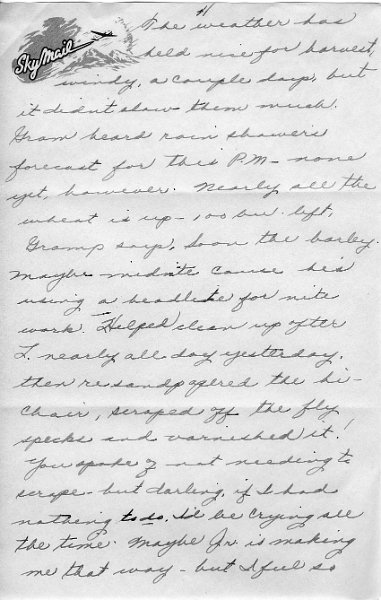 4
Sky Mail
The weather has
held nice for harvest,
windy, a couple days, but
it didn't slow them much.
Gram heard rain showers
forecast for this P.M. - none
yet, however. Nearly all the
wheat is up - 100 bu. left,
Gramp says. Soon the barley.
Maybe midnite cause he's
using a headlite for nite
work. Helped clean up after
L. nearly all day yesterday.
then resandpapered the hi-
chair, scraped off the fly
specks and varnished it!
You spoke of not needing to
scrape - but darling, if I had
nothing to do, I'd be crying all
the time. Maybe Jr. is making
me that way - but I feel so